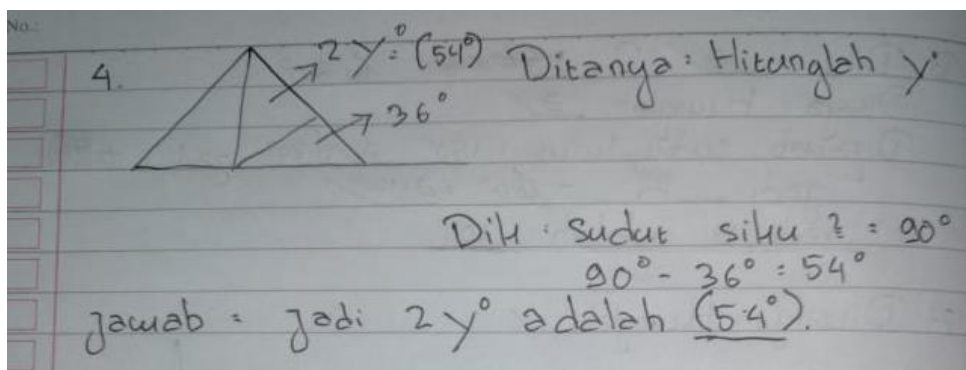 No.:
4. 2y° = (54°) Ditanya : Hitunglah y°
36°
Dik : Sudut siku 2 = 90°
90° - 36° = 54°
Jawab = Jadi 2y° adalah (54°).